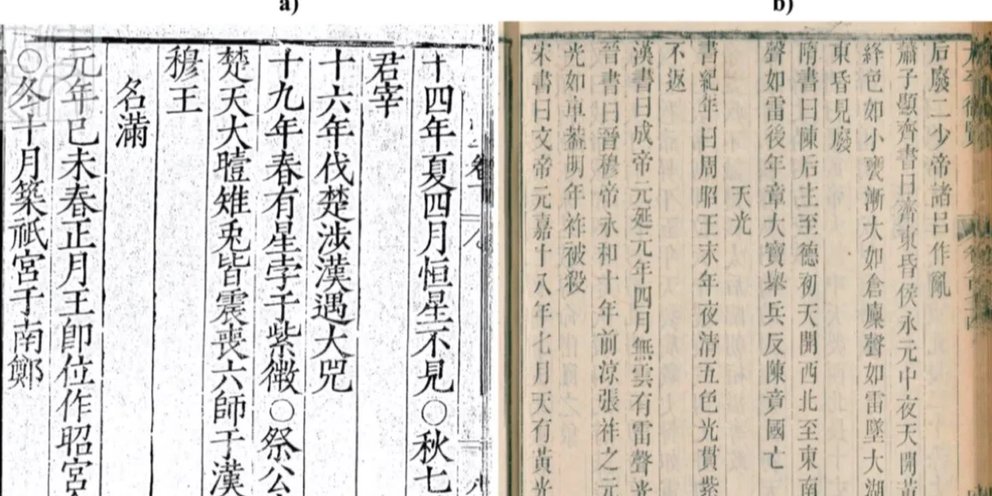 a)
十四年夏四月恒星不見○秋七
君宰
十六年伐楚涉漢遇大兕
十九年春有星孛于紫微○祭公
楚天大曀雉兎皆震喪六師于漢
穆王
名滿
元年己未春正月王卽位作昭宮
○冬十月築祇宮于南鄭
b)
后廢二少帝諸呂作亂
蕭子顯齊書曰齊東昏侯永元中夜天開黃
絳色如小甕漸大如倉廩聲如雷墜大湖
東昏見廢
隋書曰陳后主至德初天開西北至東南
聲如雷後年章大寶舉兵反陳竟國亡
天光
書紀年曰周昭王末年夜清五色光貫紫
不返
漢書曰成帝元延元年四月無雲有雷聲光
晉書曰晉穆帝永和十年前涼張祚之元
光如車蓋明年祚被殺
宋書曰文帝元嘉十八年七月天有黃光